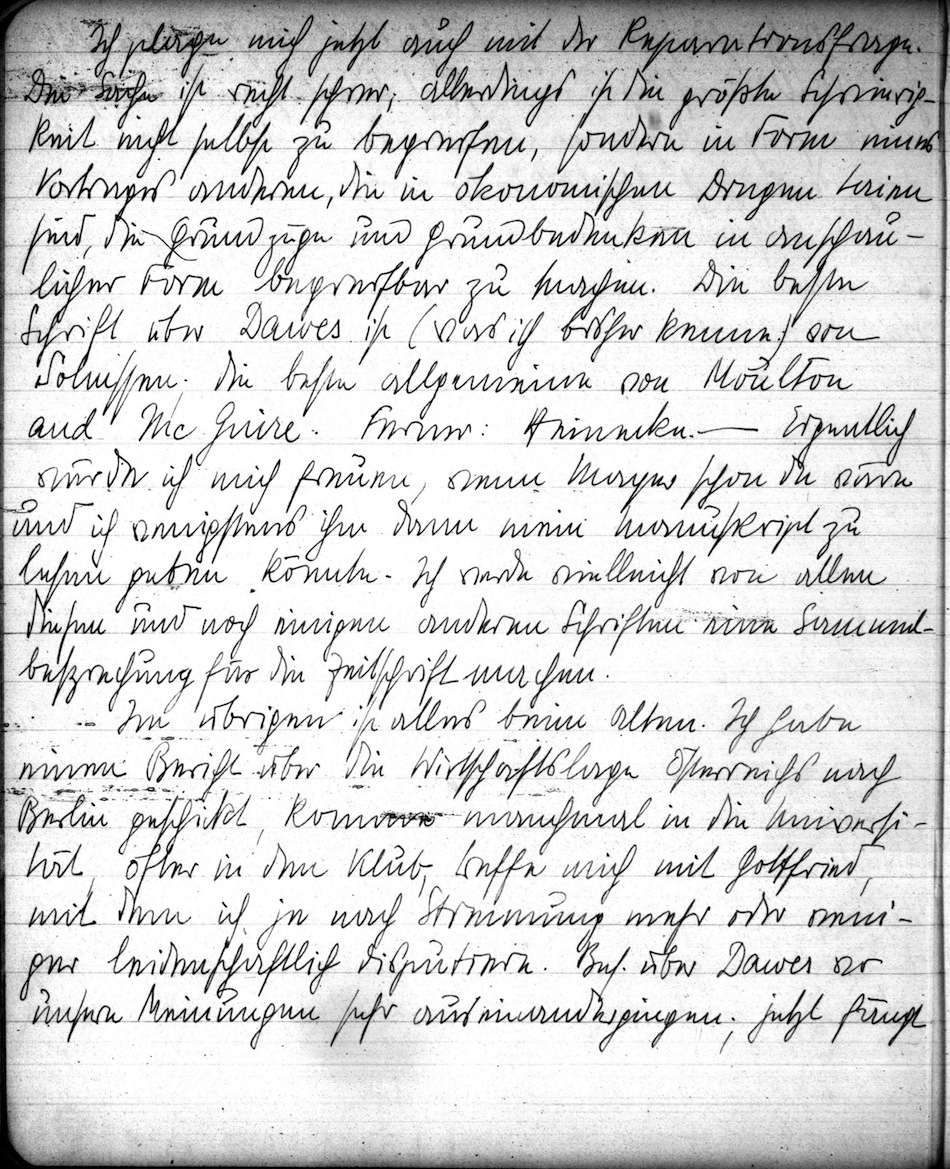 Ich plage mich jetzt auch mit der Reparationsfrage.
Die Sache ist recht schwer; allerdings ist die größte Schwierig-
keit nicht selbst zu begreifen, sondern in Form eines
Vortrages anderen, die in ökonomischen Dingen Laien
sind, die Grundzüge und Grundbedenken in anschau-
licher Form begreifbar zu machen. Die beste
Schrift über Dawes ist (was ich bisher kenne) von
Solmssen; die beste allgemeine von Moulton
and Mc Guire. Ferner: Heinecke. — Eigentlich
würde ich mich freuen, wenn Mayer schon da wäre
und ich wenigstens ihm dann mein Manuskript zu
lesen geben könnte. Ich werde vielleicht von allen
diesen und noch einigen anderen Schriften eine Sammel-
besprechung für die Zeitschrift machen.
Im übrigen ist alles beim alten. Ich habe
einen Bericht über die Wirtschaftslage Österreichs nach
Berlin geschickt, komme manchmal in die Universi-
tät, öfter in den Klub, treffe mich mit Gottfried,
mit dem ich je nach Stimmung mehr oder weni-
ger leidenschaftlich disputiere. Bes. über Dawes wo
unsere Meinungen sehr auseinandergingen; jetzt fängt